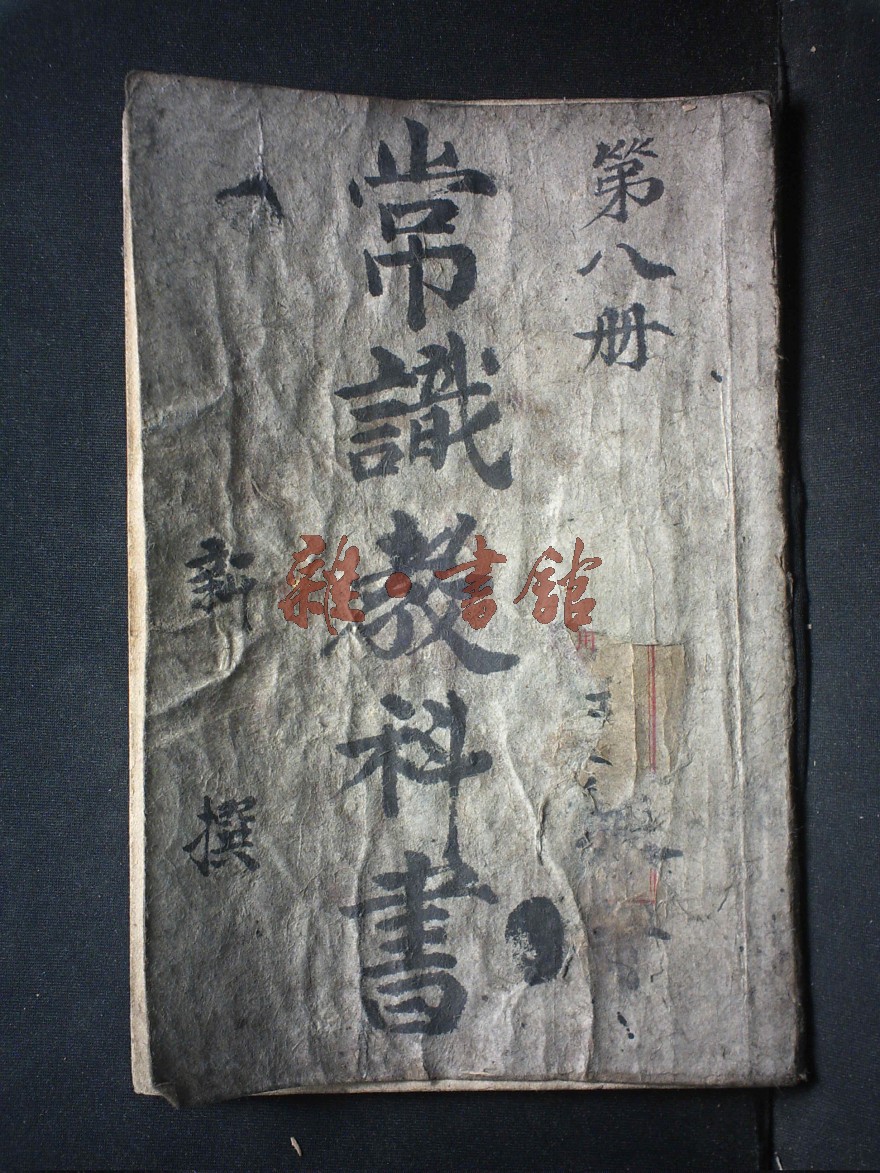 第八册
常識教科書
新撰
雜·書館
用